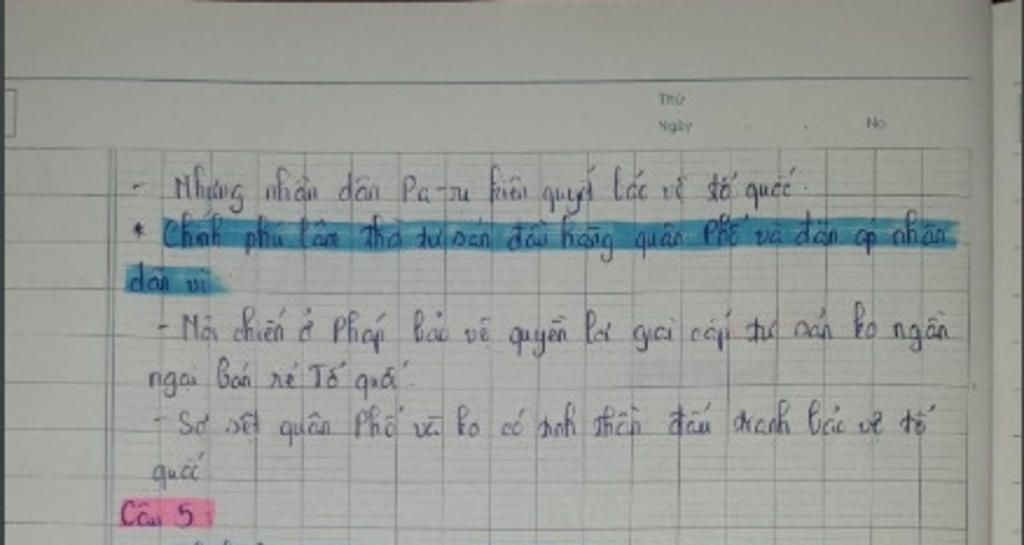 Thứ
Ngày No
- Nhưng nhân dân Pa-ri kiên quyết bảo vệ tổ quốc.
* Chính phủ lâm thời tư sản đầu hàng quân Phổ và đàn áp nhân
dân vì
- Nội chiến ở Pháp bảo vệ quyền lợi giai cấp tư sản ko ngần
ngại bán rẻ Tổ quốc.
- Sợ sệt quân Phổ và ko có tinh thần đấu tranh bảo vệ tổ
quốc
Câu 5: